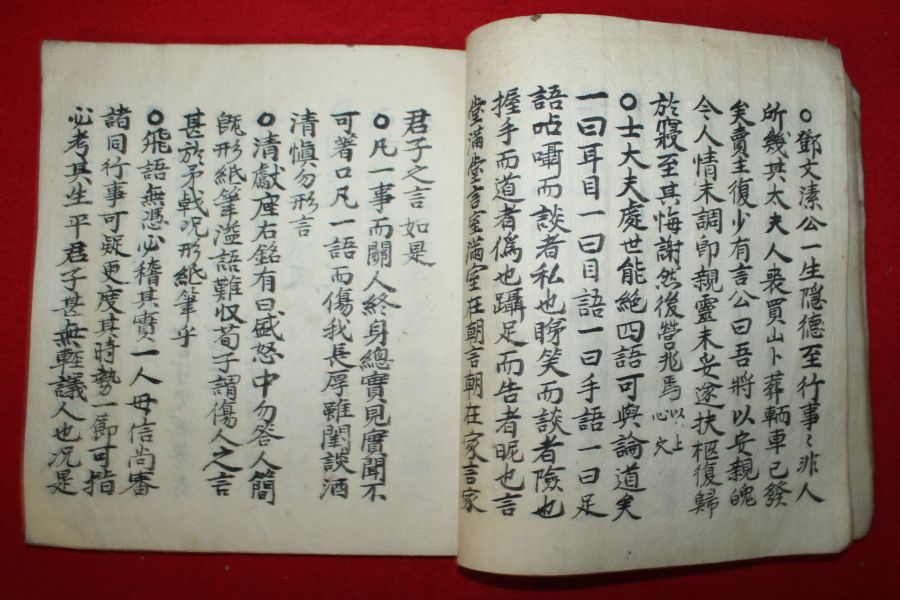 ○鄧文潔公一生隱德至行事〻非人
所幾其太夫人喪買山卜葬輀車已發
矣賣主復少有言公曰吾將以安親魄
令人情未調卽親靈未妥遂扶柩復歸
於寢至其悔謝然後營兆焉 以上心穴
○士大夫處世能絶四語可與論道矣
一曰耳目一曰目語一曰手語一曰足
語呫囁而談者私也睇笑而談者險也
握手而道者僞也躡足而告者昵也言
堂滿堂言室滿室在朝言朝在家言家
君子之言如是
○凡一事而關人終身總實見實聞不
可著口凡一語而傷我長厚雖閨談酒
清愼勿形言
○清獻座右銘有曰盛怒中勿答人簡
旣形紙筆溢語難収荀子謂傷人之言
甚於矛戟况形紙筆乎
○飛語無憑必稽其實一人毋信尙審
諸同行事可疑更度其時勢一節可指
必考其生平君子甚無輕議人也况是